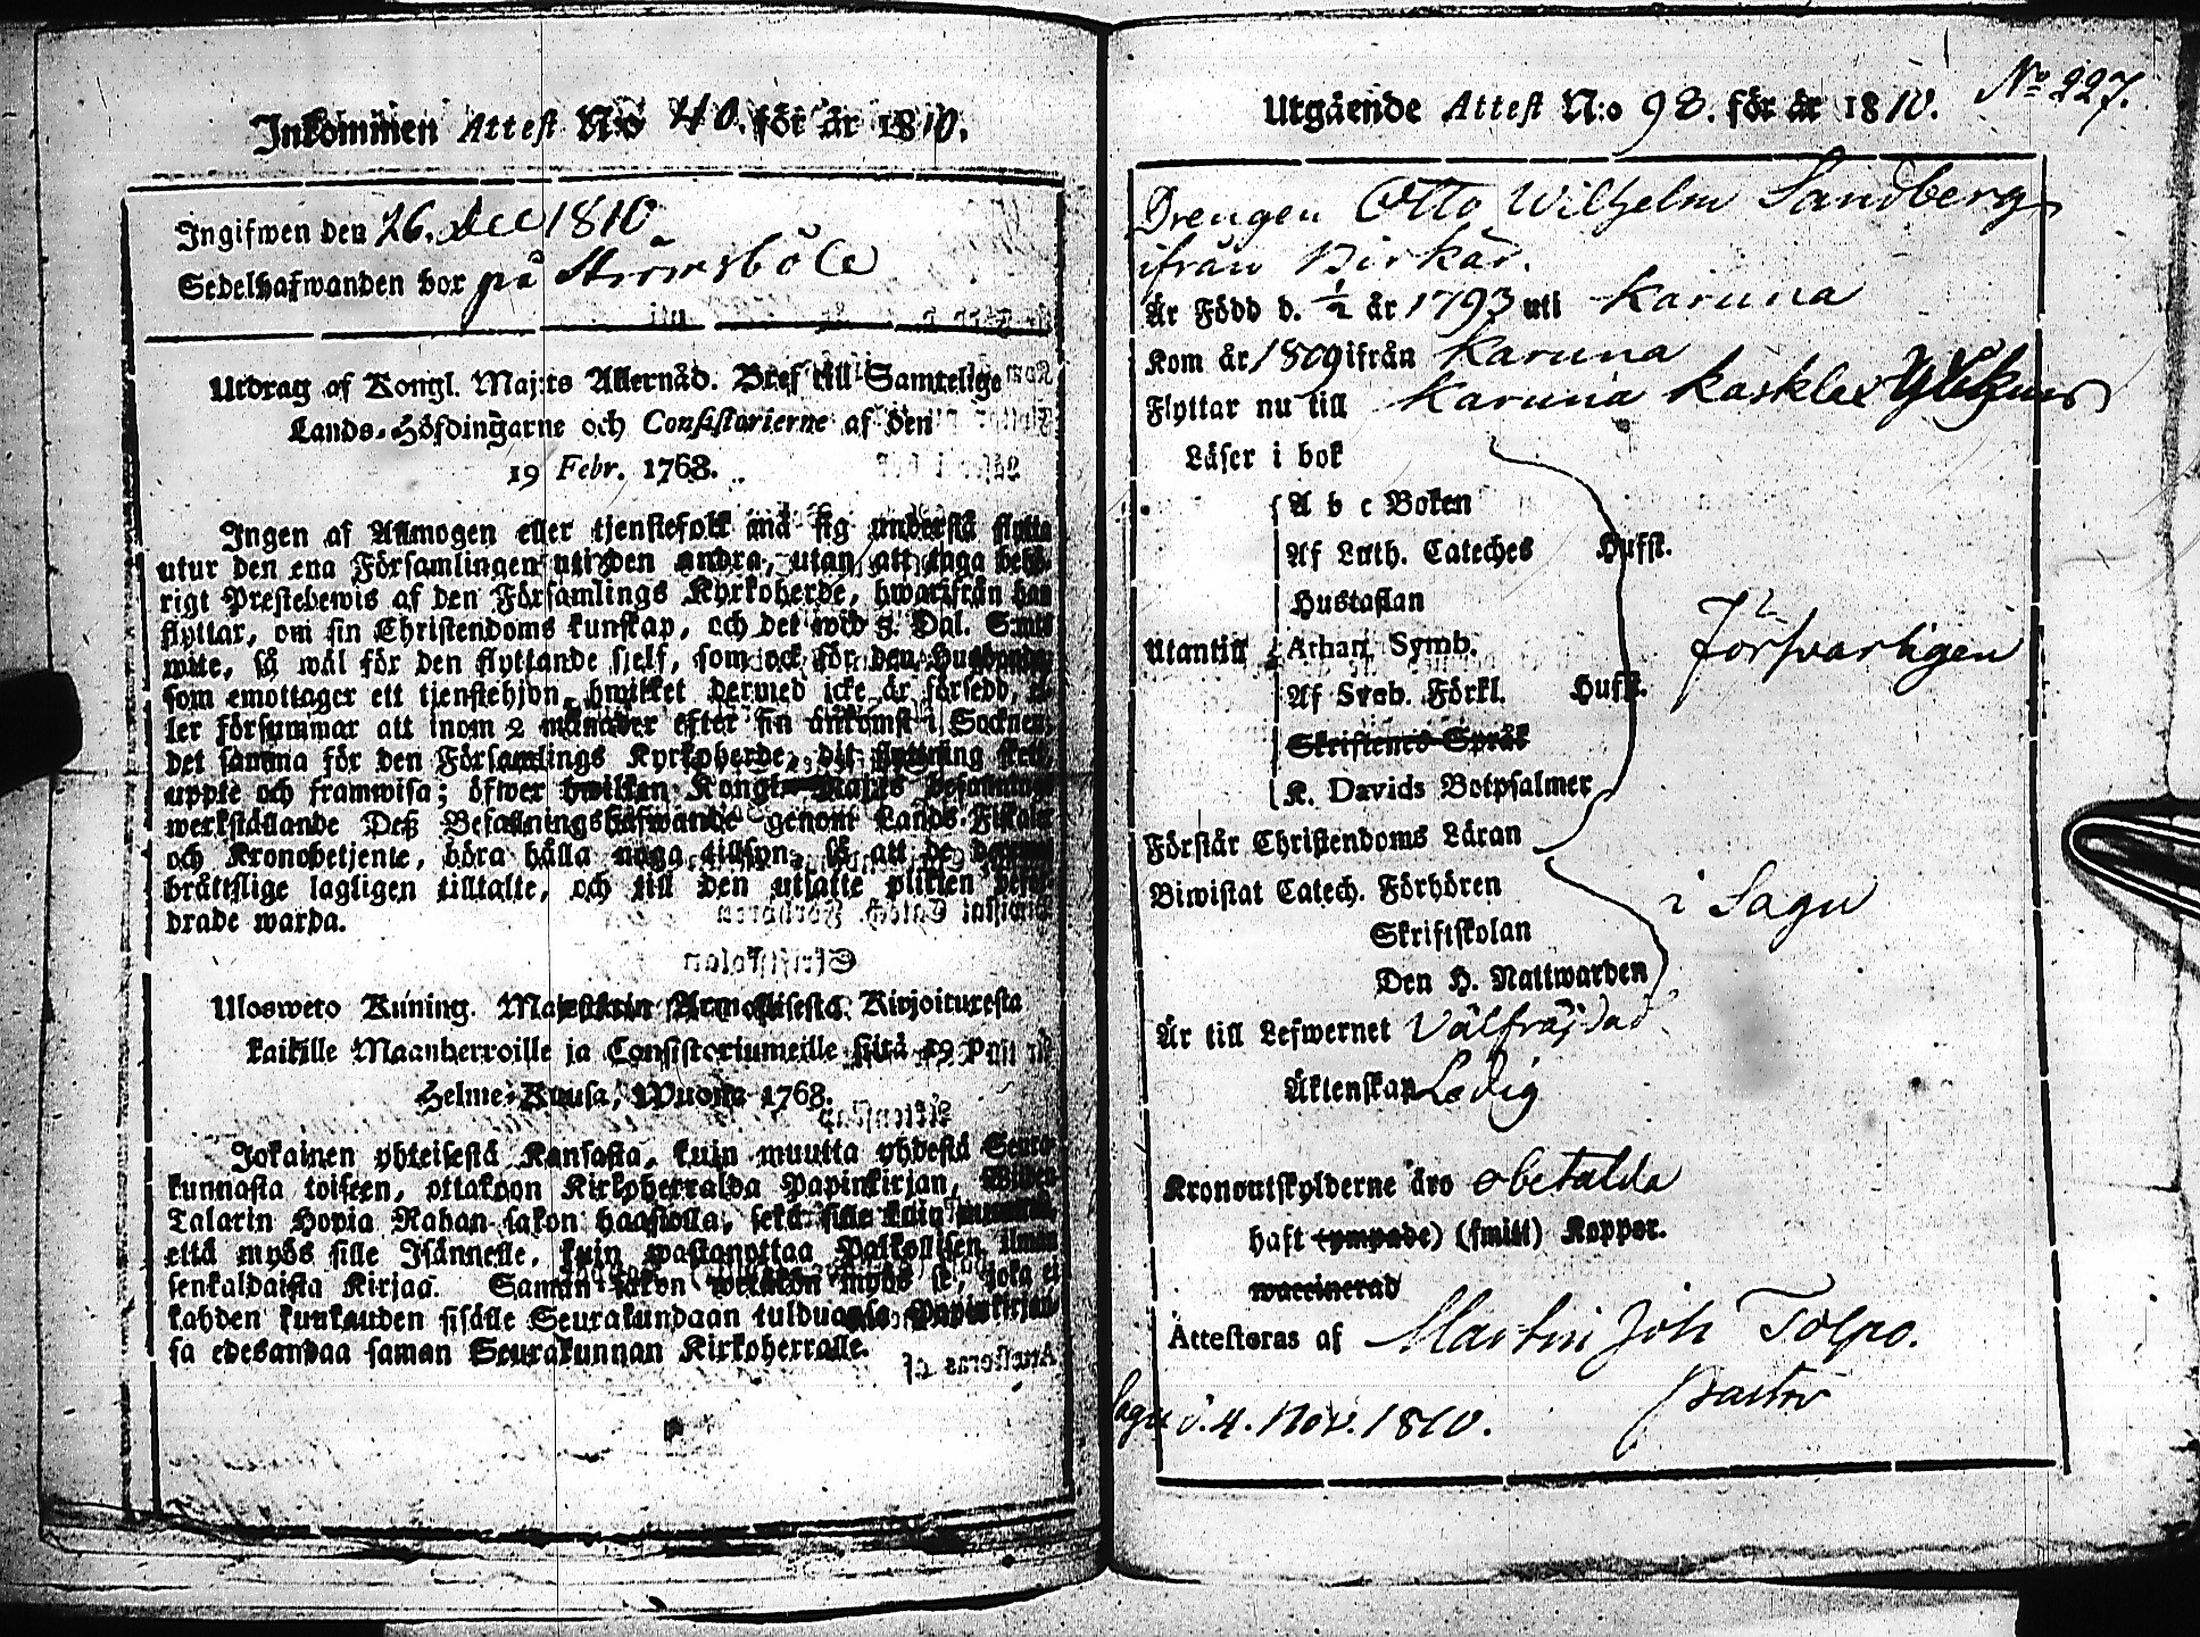 Inkommen Attest N:o 40. för år 1810.
Ingifwen den 26. Dec 1810
Sedelhafwanden bor på Strömsböle
Utdrag af Kongl. Maj:ts Allernåd. Bref till Samtelige
Lands-Höfdingarne och Consistorierne af den
19 Febr. 1768.
Ingen af Allmogen eller tjenstefolk må sig understå flytta
utur den ena Församlingen uti den andra, utan att taga behö-
rigt Prestebewis af den Församlings Kyrkoherde, hwarifrån han
flyttar, om sin Christendoms kunskap, och det wid 5. Dal. S:mts
wite, så wäl för den flyttande sjelf, som ock för den Husbonde,
som emottager ett tjenstehjon, hwilket dermed icke är försedd, el-
ler försummar att inom 2 månader efter sin ankomst i Socknen,
det samma för den Församlings Kyrkoherde, dit flyttning skett,
uppte och framwisa; öfwer hwilken Kongl. Maj:ts befallning
werkställande Deß Befallningshafwande genom Lands-Fiskaler
och Kronobetjente, böra hålla noga tillsyn, så att de
bråttslige lagligen tilltalte, och till den utsatte plikten befor-
drade warda.
Ulosweto Kuning. Majestetin Armollisesta Kirjoituxesta
kaikille Maanherroille ja Consistoriumeille siitä 19 P:stä
Helme-Kuusa, Wuonna 1768.
Jokainen yhteisestä Kansasta, kuin muutta yhdestä Seura-
kunnasta toiseen, ottakoon Kirkoherralda Papinkirjan, Wiiden
Talarin Hopia Rahan sakon haastolla, sekä sille kuin muutta,
että myös sille Isännelle, kuin wastanottaa Palkollisen ilman
senkaldaista Kirjaa. Saman sakon wetäkön myös se, joka ei
kahden kuukauden sisälle Seurakundaan tulduansa Papinkirjan-
sa edesandaa saman Seurakunnan Kirkoherralle.
No 227.
Utgående Attest N:o 98. för år 1810.
Drengen Otto Wilhelm Sandberg
ifrån Pirkar.
Är Född d. 1/2 år 1793 uti Karuna
Kom år 1809 ifrån Karuna
Flyttar nu till Karuna
Läser i bok
A b c Boken
Af Luth. Cateches Hufst.
Hustaflan
Utantill Athan. Symb.
Af Sveb. Förkl. Hufst.
Skriftenes Språk
K. Davids Botpsalmer
Försvarligen
Förstår Christendoms Läran
Biwistat Catech. Förhören i Sagu
Skriftskolan
Den H. Nattwarden
Är till Lefwernet Välfräjdad
Äktenskap Ledig
Kronoutskylderne äro obetalda
haft (ympade) (smitt) Koppor.
waccinerad
Attesteras af Martin Joh Tolpo.
Pastor
Sagu d. 4. Nov. 1810.